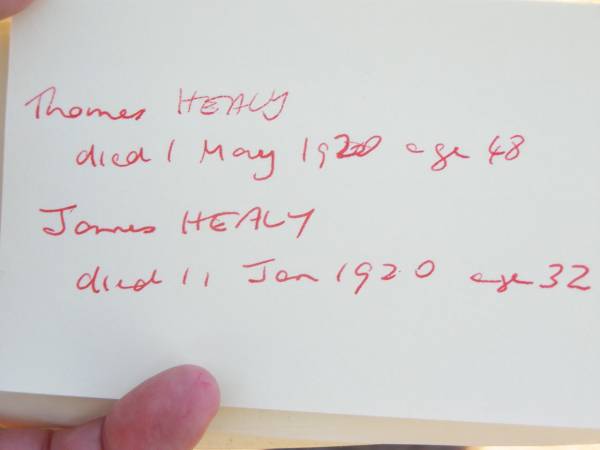 Thomas HEALY
died 1 May 1920 age 48
James HEALY
died 11 Jan 1920 age 32